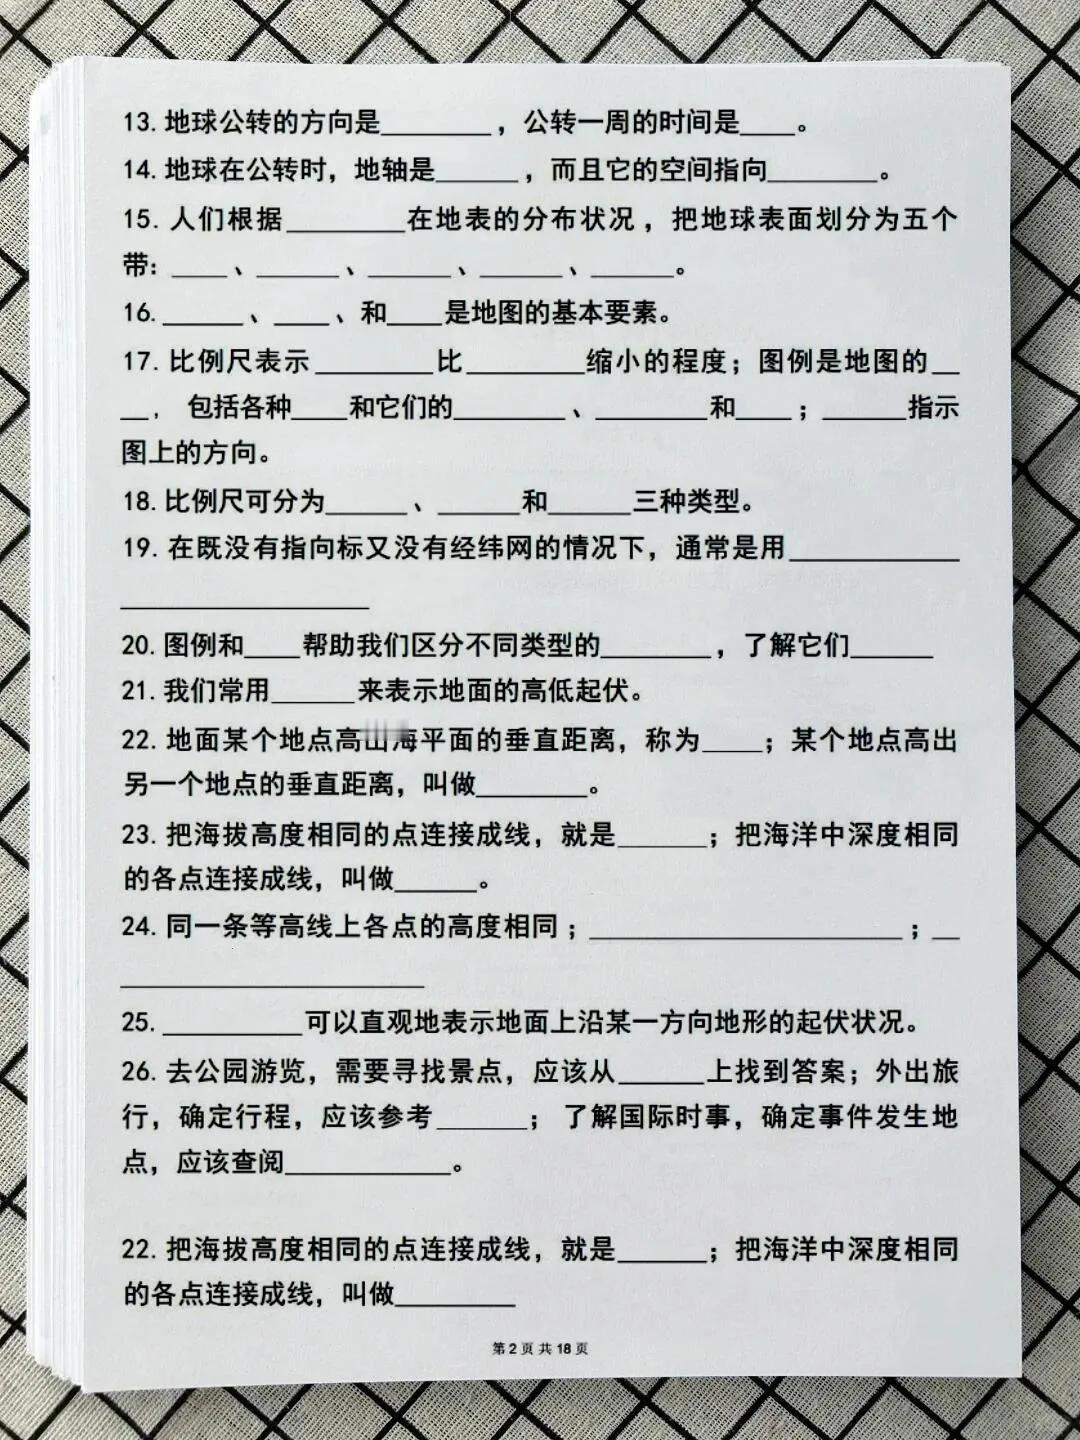 13. 地球公转的方向是________，公转一周的时间是____。
14. 地球在公转时，地轴是______，而且它的空间指向________。
15. 人们根据________在地表的分布状况，把地球表面划分为五个
带：____、______、______、______、______。
16. ______、____、和____是地图的基本要素。
17. 比例尺表示________比________缩小的程度；图例是地图的__
__， 包括各种____和它们的________、________和____；______指示
图上的方向。
18. 比例尺可分为______、______和______三种类型。
19. 在既没有指向标又没有经纬网的情况下，通常是用____________
__________________
20. 图例和____帮助我们区分不同类型的________，了解它们______
21. 我们常用______来表示地面的高低起伏。
22. 地面某个地点高出海平面的垂直距离，称为____；某个地点高出
另一个地点的垂直距离，叫做________。
23. 把海拔高度相同的点连接成线，就是______；把海洋中深度相同
的各点连接成线，叫做______。
24. 同一条等高线上各点的高度相同；______________________；__
______________________
25. __________可以直观地表示地面上沿某一方向地形的起伏状况。
26. 去公园游览，需要寻找景点，应该从______上找到答案；外出旅
行，确定行程，应该参考______； 了解国际时事，确定事件发生地
点，应该查阅____________。
22. 把海拔高度相同的点连接成线，就是______；把海洋中深度相同
的各点连接成线，叫做________
第 2 页 共 18 页